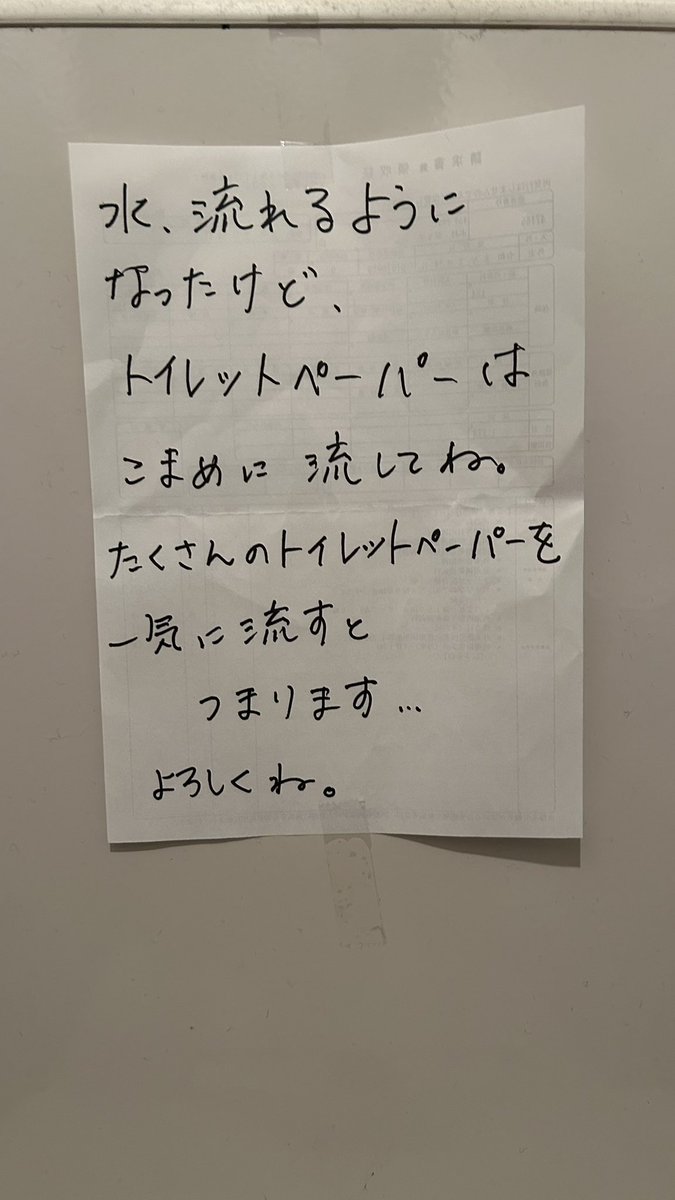 水、流れるように
なったけど、
トイレットペーパーは
こまめに 流してね。
たくさんのトイレットペーパーを
一気に流すと
つまります…
よろしくね。
請求書兼領収証